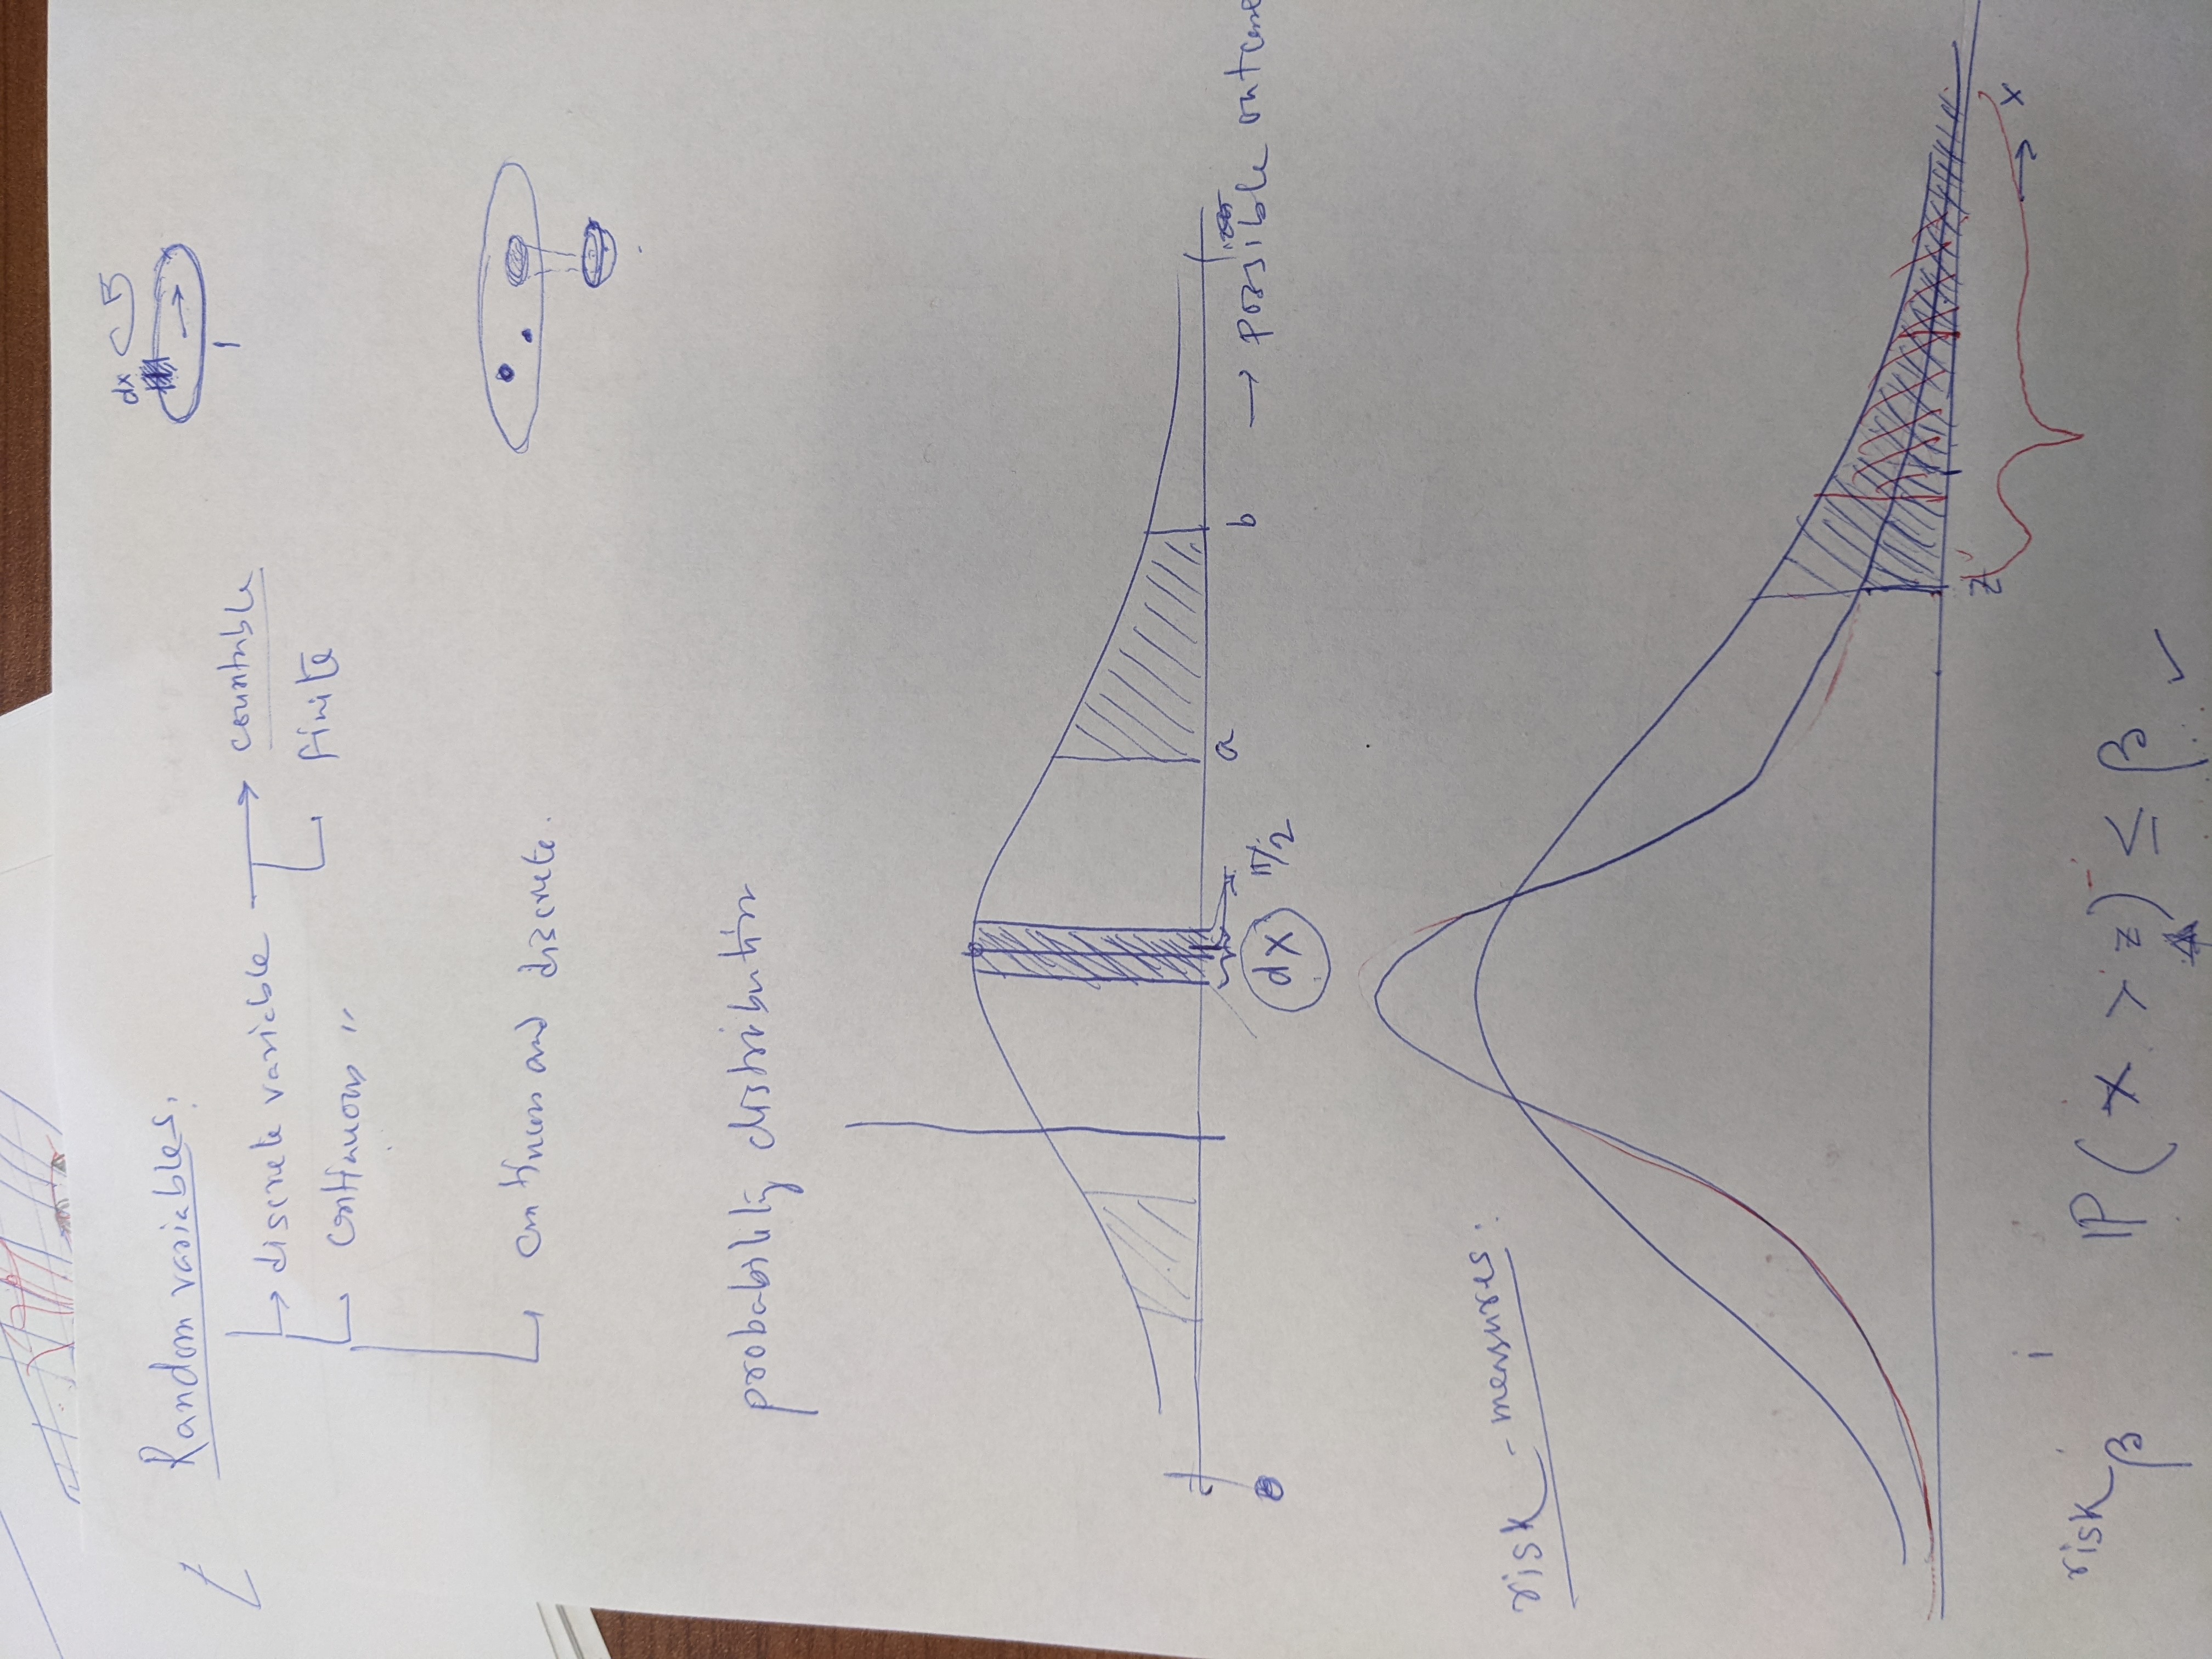 dx
Random variables.
→ discrete variable → countable
finite
continuous "
continuous and discrete.
probability distribution
a
b
→ possible outcome
π/2
dx
risk-measures:
z
→ x
risk β : P(x > z) ≤ β ✓